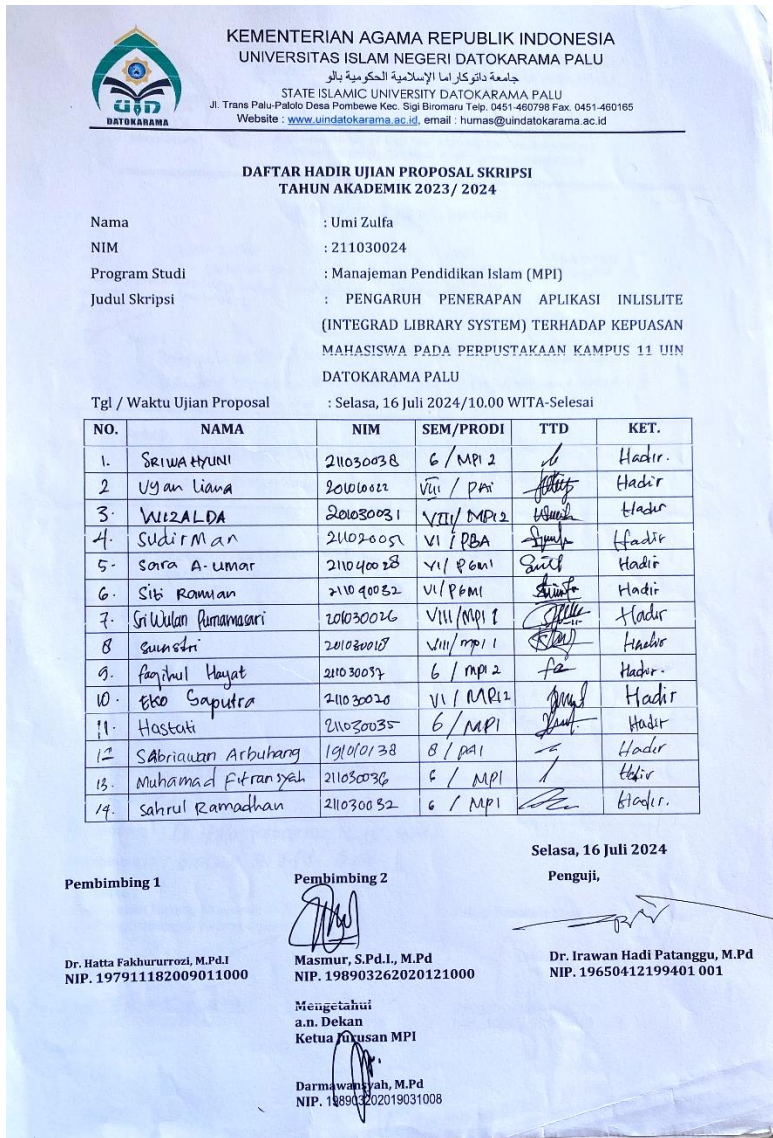 KEMENTERIAN AGAMA REPUBLIK INDONESIA
UNIVERSITAS ISLAM NEGERI DATOKARAMA PALU
جامعة داتوكاراما الإسلامية الحكومية بالو
STATE ISLAMIC UNIVERSITY DATOKARAMA PALU
Jl. Trans Palu-Palolo Desa Pombewe Kec. Sigi Biromaru Telp. 0451-460798 Fax. 0451-460165
Website : www.uindatokarama.ac.id, email : humas@uindatokarama.ac.id
UID
DATOKARAMA
DAFTAR HADIR UJIAN PROPOSAL SKRIPSI
TAHUN AKADEMIK 2023/ 2024
Nama : Umi Zulfa
NIM : 211030024
Program Studi : Manajeman Pendidikan Islam (MPI)
Judul Skripsi : PENGARUH PENERAPAN APLIKASI INLISLITE
(INTEGRAD LIBRARY SYSTEM) TERHADAP KEPUASAN
MAHASISWA PADA PERPUSTAKAAN KAMPUS 11 UIN
DATOKARAMA PALU
Tgl / Waktu Ujian Proposal : Selasa, 16 Juli 2024/10.00 WITA-Selesai
NO. NAMA NIM SEM/PRODI TTD KET.
1. SRIWAHYUNI 211030038 6 / MPI 2 Hadir.
2 Uyan Liana 201010022 VIII / PAI Hadir
3. WIZALDA 201030031 VIII/MPI2 Hadir
4. Sudirman 211020051 VI / PBA Hadir
5. Sara A. umar 211040028 VI/PGMI Hadir
6. Siti Ramlan 211040032 VI/PGMI Hadir
7. Sri Wulan Purnamasari 201030026 VIII/MPI 1 Hadir
8 201030018 VIII/mpi 1 Hadir
9. Faqihul Hayat 211030037 6 / mpi 2 Hadir.
10. Eko Saputra 211030020 VI / MPI2 Hadir
11. Hastati 211030035 6 / MPI Hadir
12 Sabriawan Arbuhang 191010138 8 / PAI Hadir
13. Muhamad Fitransyah 211030036 6 / MPI Hadir
14. Sahrul Ramadhan 211030032 6 / MPI Hadir.
Selasa, 16 Juli 2024
Pembimbing 1 Pembimbing 2 Penguji,
Dr. Hatta Fakhururrozi, M.Pd.I Masmur, S.Pd.I., M.Pd Dr. Irawan Hadi Patanggu, M.Pd
NIP. 197911182009011000 NIP. 198903262020121000 NIP. 19650412199401 001
Mengetahui
a.n. Dekan
Ketua Jurusan MPI
Darmawansyah, M.Pd
NIP. 198903202019031008